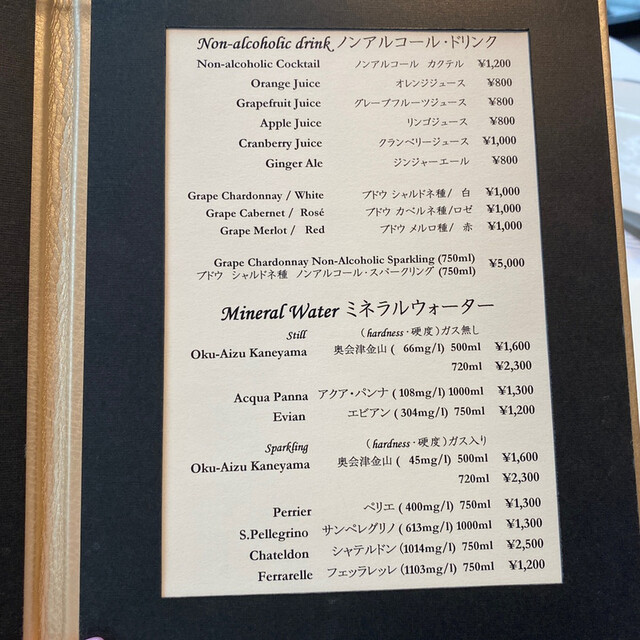 Non-alcoholic drink ノンアルコール・ドリンク
Non-alcoholic Cocktail ノンアルコール カクテル ¥1,200
Orange Juice オレンジジュース ¥800
Grapefruit Juice グレープフルーツジュース ¥800
Apple Juice リンゴジュース ¥800
Cranberry Juice クランベリージュース ¥1,000
Ginger Ale ジンジャーエール ¥800
Grape Chardonnay / White ブドウ シャルドネ種/ 白 ¥1,000
Grape Cabernet / Rosé ブドウ カベルネ種/ロゼ ¥1,000
Grape Merlot / Red ブドウ メルロ種/ 赤 ¥1,000
Grape Chardonnay Non-Alcoholic Sparkling (750ml) ¥5,000
ブドウ シャルドネ種 ノンアルコール・スパークリング (750ml)
Mineral Water ミネラルウォーター
Still (hardness・硬度)ガス無し
Oku-Aizu Kaneyama 奥会津金山 ( 66mg/l) 500ml ¥1,600
720ml ¥2,300
Acqua Panna アクア・パンナ ( 108mg/l) 1000ml ¥1,300
Evian エビアン ( 304mg/l) 750ml ¥1,200
Sparkling (hardness・硬度)ガス入り
Oku-Aizu Kaneyama 奥会津金山 ( 45mg/l) 500ml ¥1,600
720ml ¥2,300
Perrier ペリエ ( 400mg/l) 750ml ¥1,300
S.Pellegrino サンペレグリノ ( 613mg/l) 1000ml ¥1,300
Chateldon シャテルドン (1014mg/l) 750ml ¥2,500
Ferrarelle フェッラレッレ (1103mg/l) 750ml ¥1,200